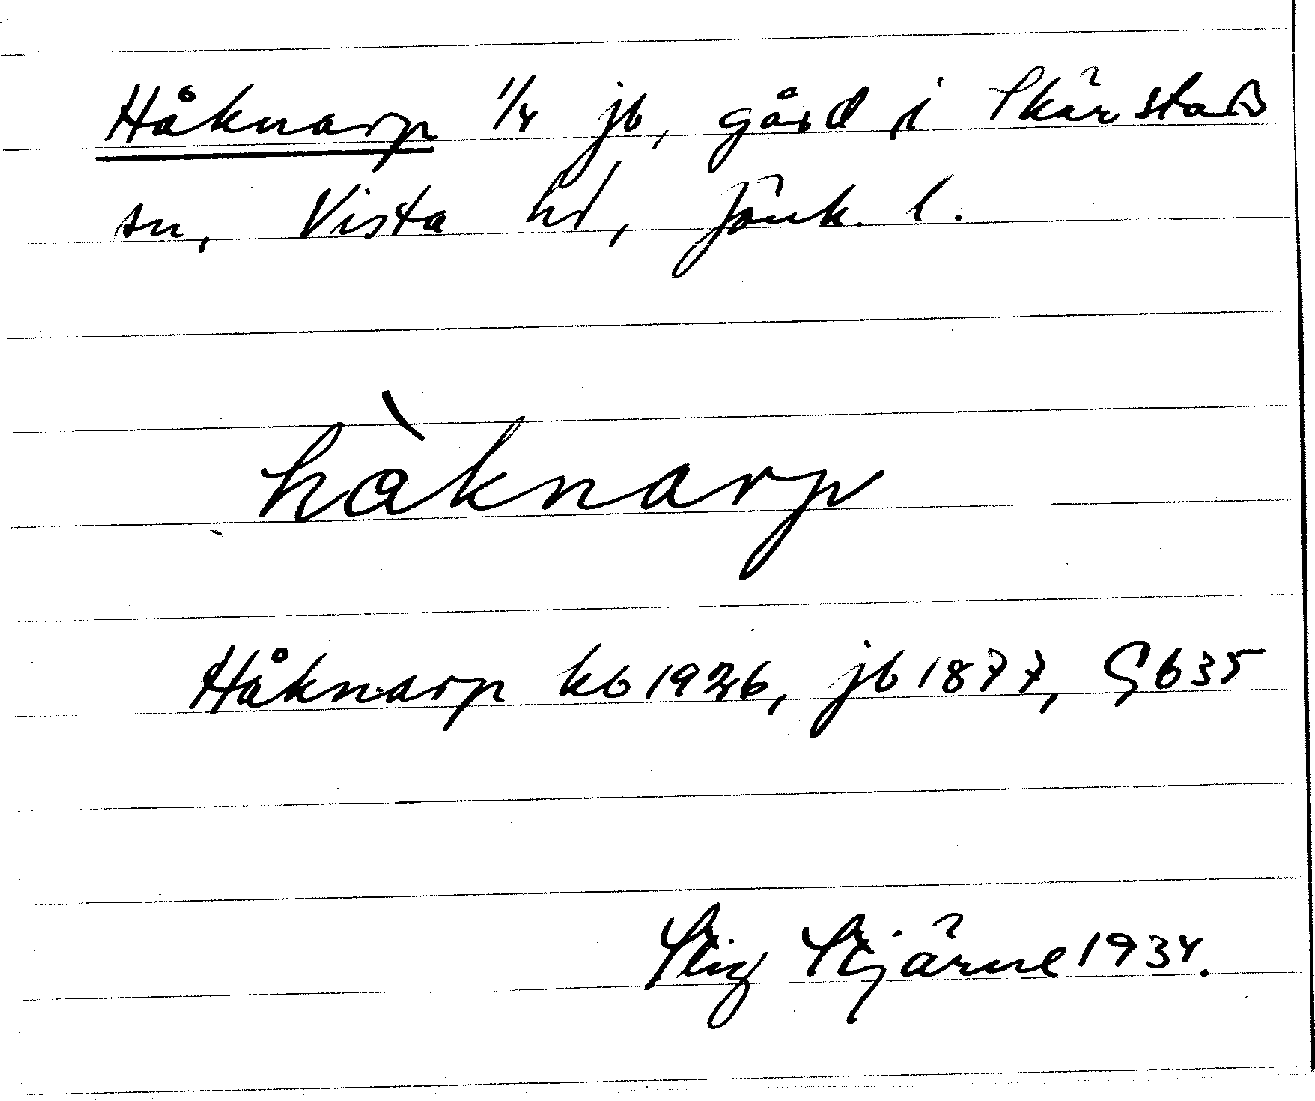 Håknarp 1/4 jb, gård i Skärstads
sn, Vista hd, Jönk. l.
hàknarp
Håknarp kb 1926, jb 1877, Gb 35
Stig Stjärne 1934.